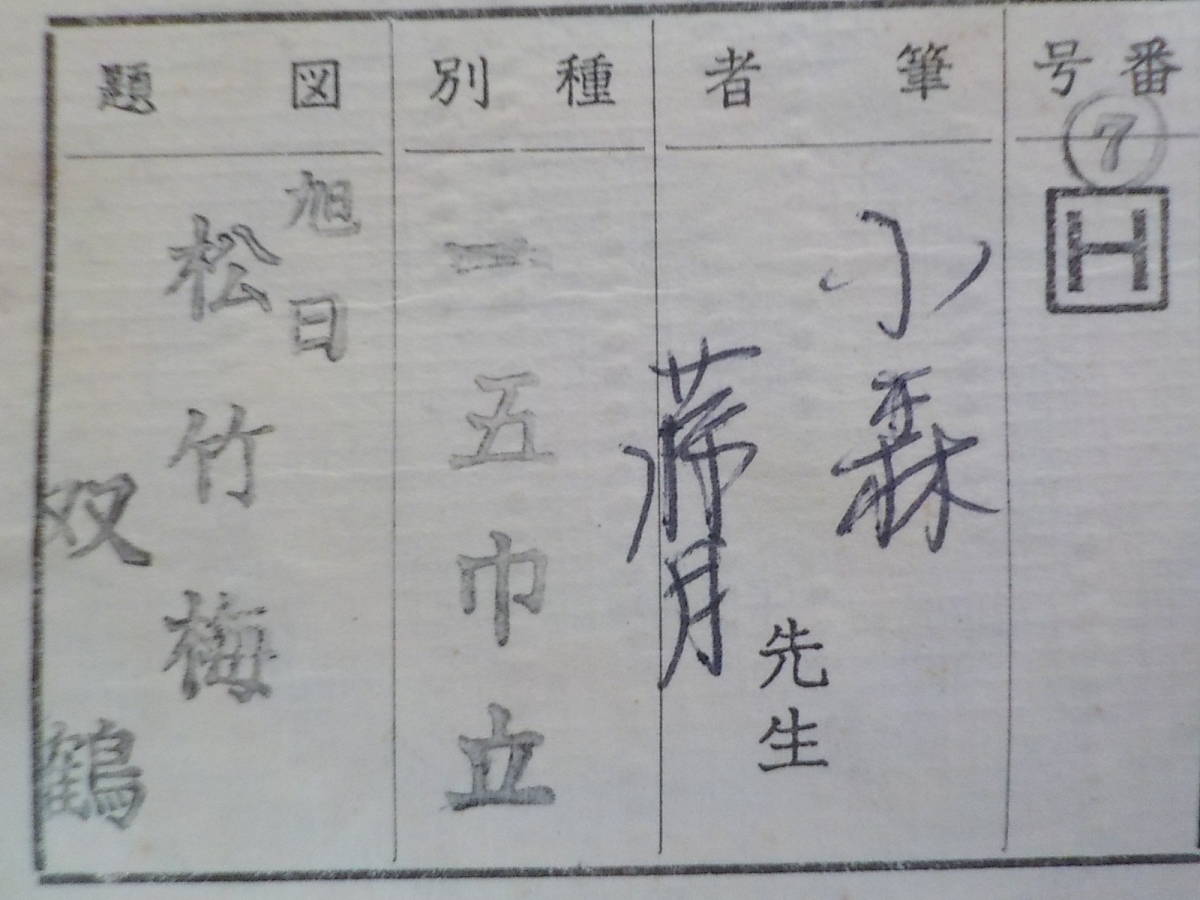 番号
⑦
H
筆者
小森
月
先生
種別
一五巾立
図題
旭日
松竹梅
双鶴